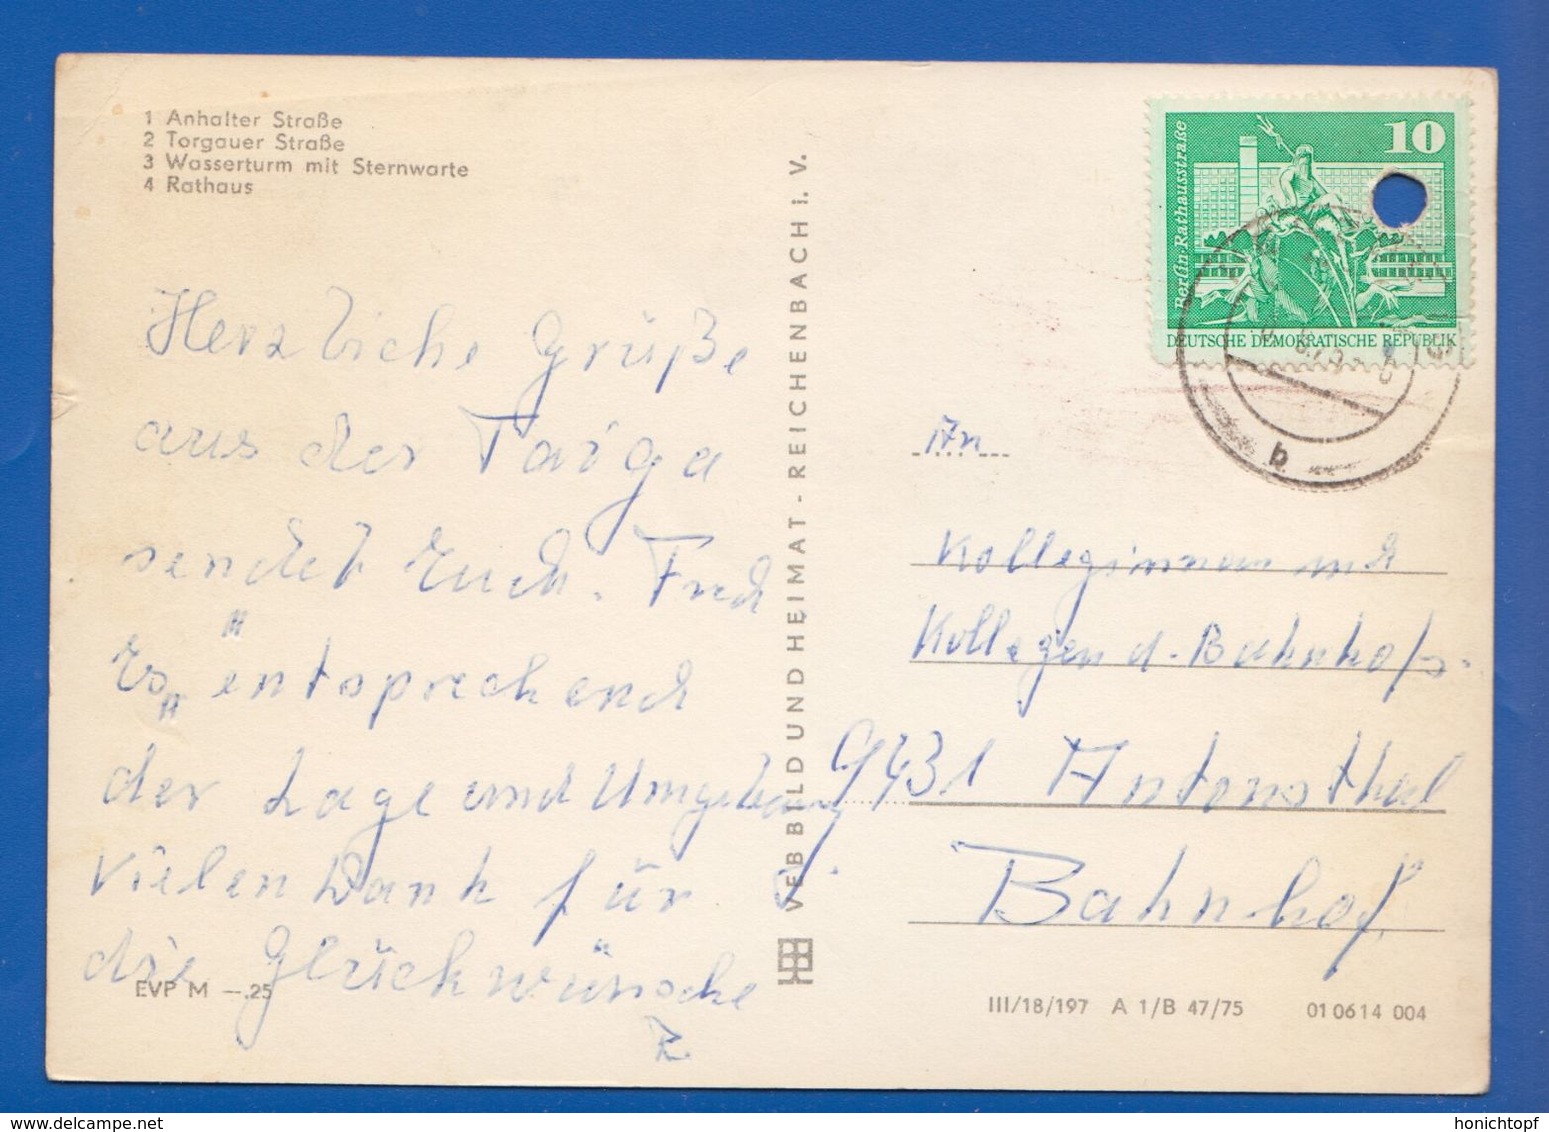 1 Anhalter Straße
2 Torgauer Straße
3 Wasserturm mit Sternwarte
4 Rathaus
Herzliche Grüße
aus der Taiga
sendet Euch. Fred
"entsprechend
der Lage und Umgebung.
Vielen Dank für
die Glückwünsche
R.
EVP M —.25
VEB BILD UND HEIMAT - REICHENBACH i. V.
10
Berlin-Rathausstraße
DEUTSCHE DEMOKRATISCHE REPUBLIK
b
An
Kolleginnen und
Kollegen d. Bahnhofs.
9431 Antonsthal
Bahnhof.
III/18/197 A 1/B 47/75 01 06 14 004
www.delcampe.net
honichtopf